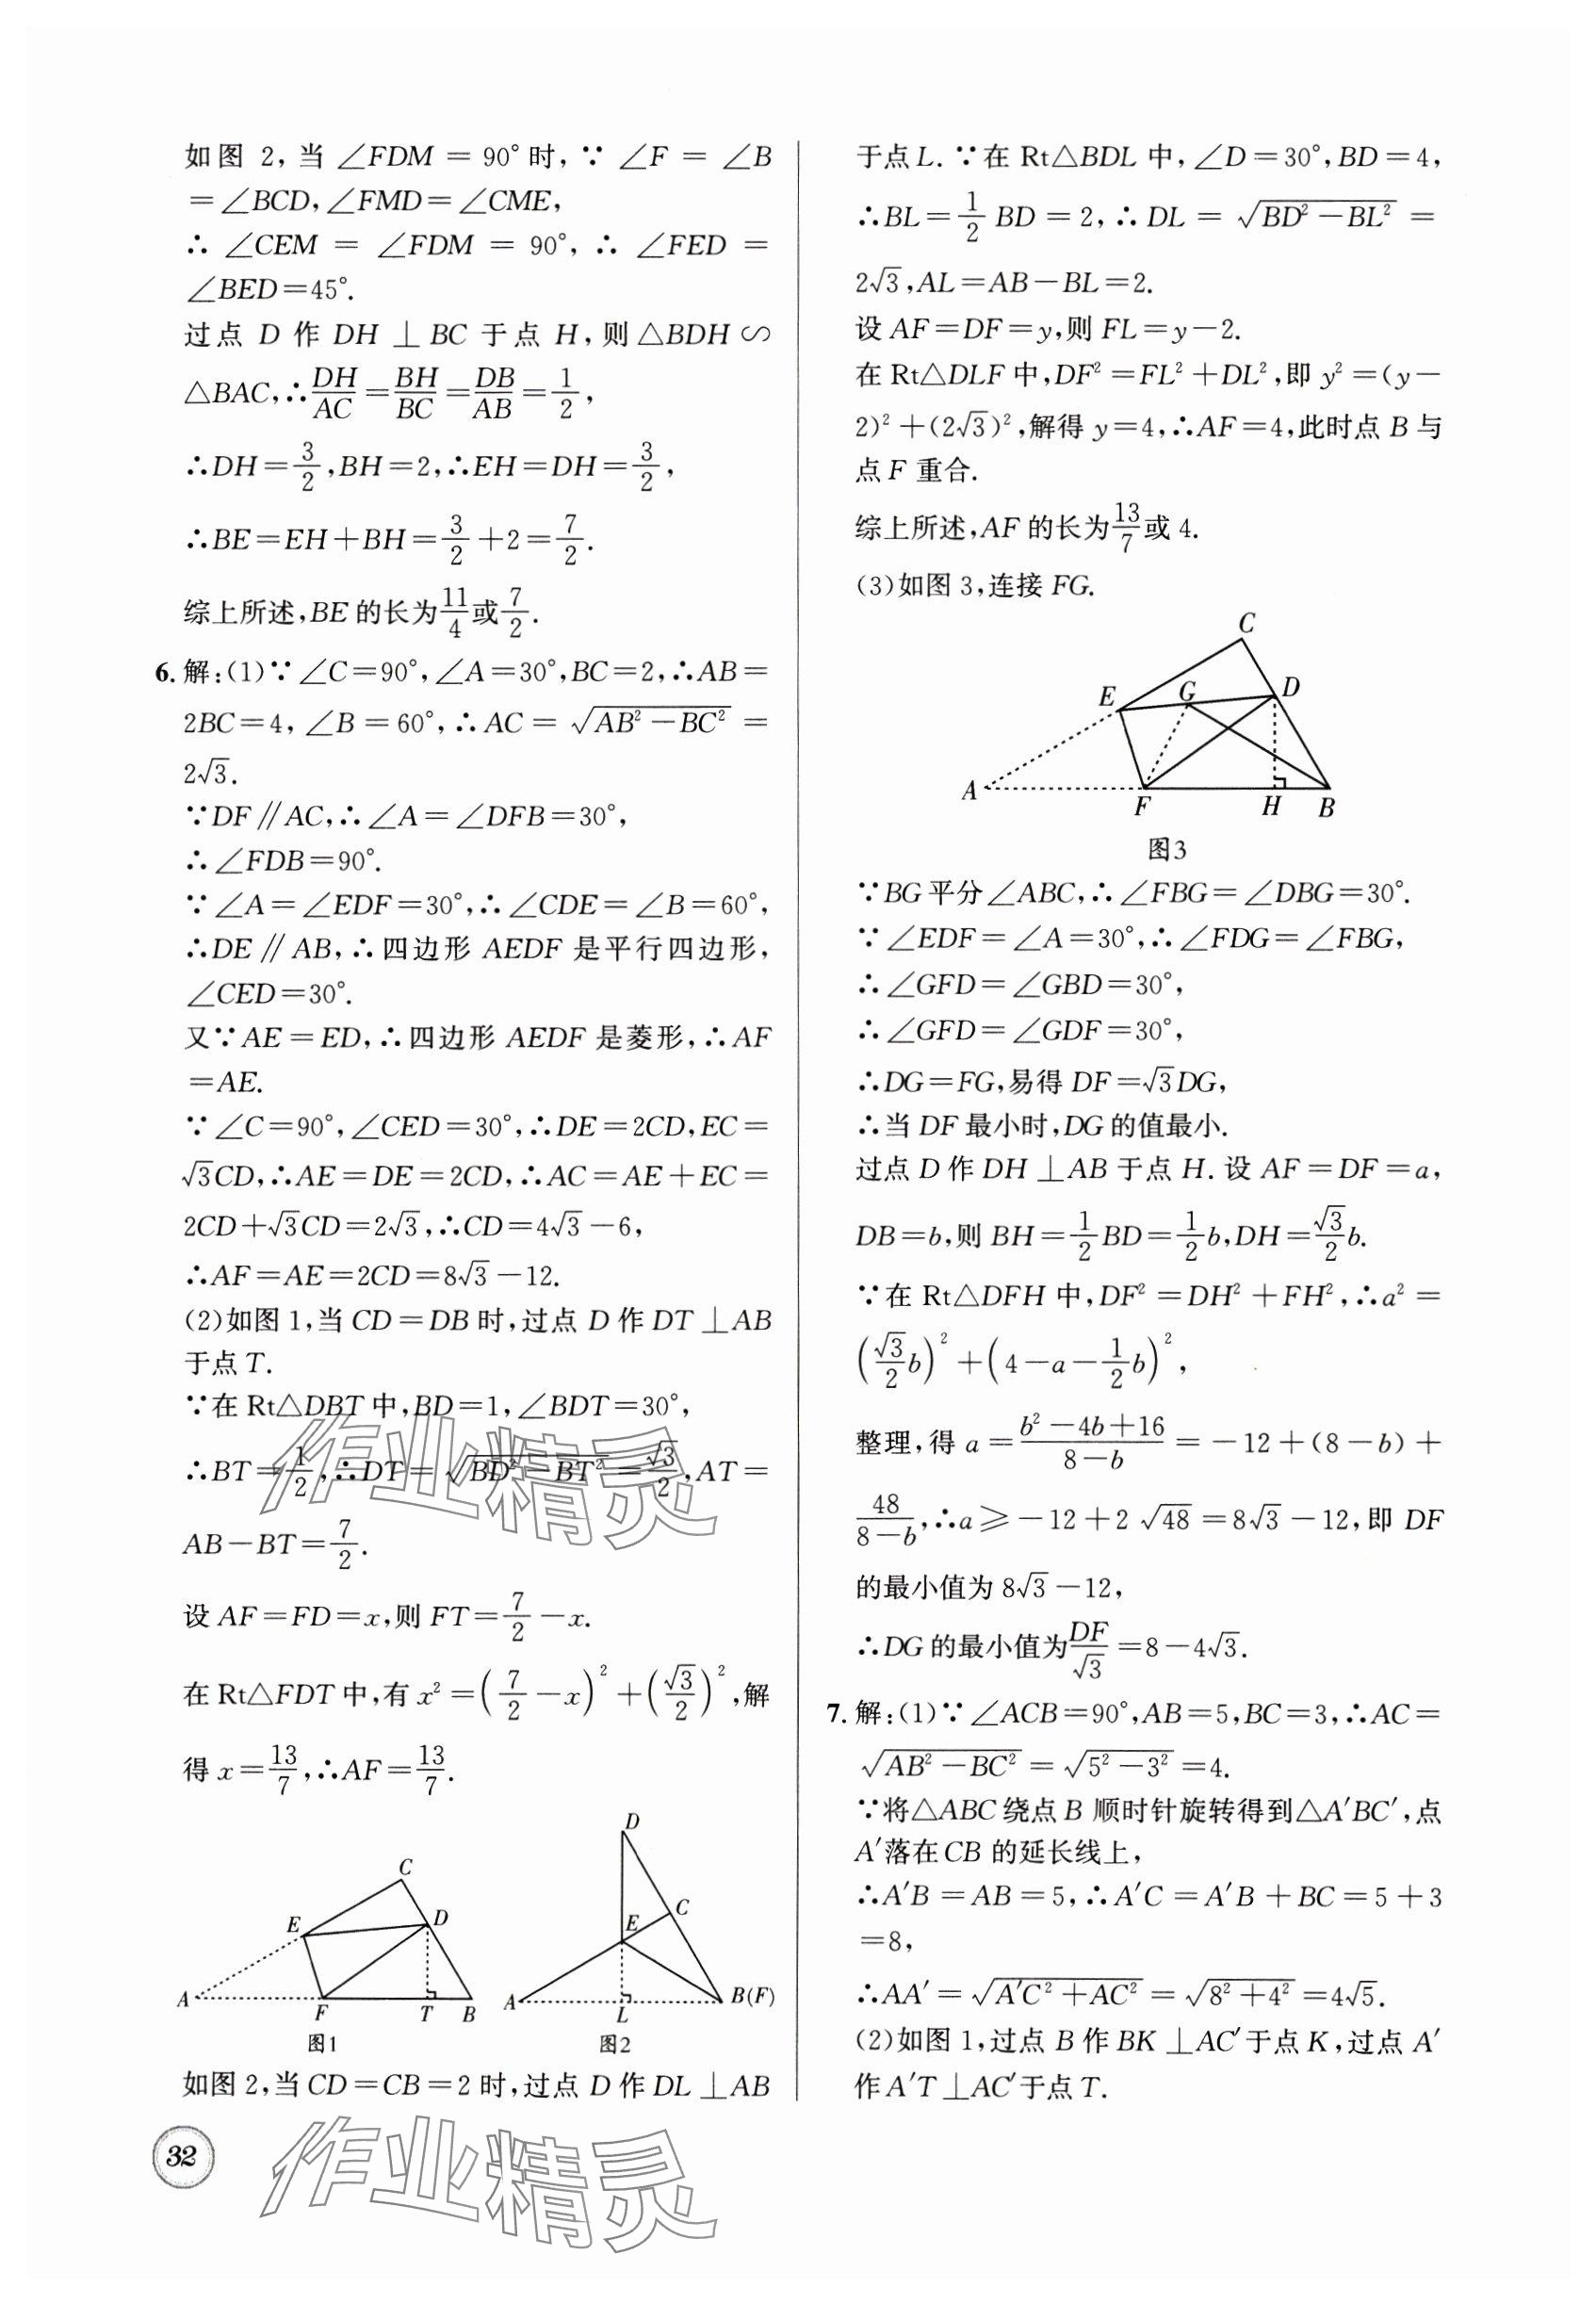 如图 2, 当 ∠FDM = 90°时, ∵ ∠F = ∠B
=∠BCD,∠FMD=∠CME,
∴ ∠CEM = ∠FDM = 90°, ∴ ∠FED =
∠BED=45°.
过点 D 作 DH ⊥ BC 于点 H, 则△BDH∽
△BAC,∴DH/AC=BH/BC=DB/AB=1/2,
∴DH=3/2,BH=2,∴EH=DH=3/2,
∴BE=EH+BH=3/2+2=7/2.
综上所述,BE的长为11/4或7/2.
6. 解:(1)∵∠C=90°,∠A=30°,BC=2,∴AB=
2BC=4, ∠B=60°,∴AC=√(AB²-BC²)=
2√3.
∵DF∥AC,∴∠A=∠DFB=30°,
∴∠FDB=90°.
∵∠A=∠EDF=30°,∴∠CDE=∠B=60°,
∴DE∥AB,∴四边形 AEDF 是平行四边形,
∠CED=30°.
又∵AE=ED,∴四边形 AEDF 是菱形,∴AF
=AE.
∵∠C=90°,∠CED=30°,∴DE=2CD,EC=
√3CD,∴AE=DE=2CD,∴AC=AE+EC=
2CD+√3CD=2√3,∴CD=4√3-6,
∴AF=AE=2CD=8√3-12.
(2)如图1,当CD=DB时,过点D作DT⊥AB
于点T.
∵在Rt△DBT中,BD=1,∠BDT=30°,
∴BT=1/2,∴DT=√(BD²-BT²)=√3/2,AT=
AB-BT=7/2.
设AF=FD=x,则FT=7/2-x.
在Rt△FDT中,有x²=(7/2-x)²+(√3/2)²,解
得x=13/7,∴AF=13/7.
C
E
D
A
F
T
B
图1
D
C
E
A
L
B(F)
图2
如图2,当CD=CB=2时,过点D作DL⊥AB
32
于点L.∵在Rt△BDL中,∠D=30°,BD=4,
∴BL=1/2BD=2,∴DL=√(BD²-BL²)=
2√3,AL=AB-BL=2.
设AF=DF=y,则FL=y-2.
在Rt△DLF中,DF²=FL²+DL²,即y²=(y-
2)²+(2√3)²,解得y=4,∴AF=4,此时点B与
点F重合.
综上所述,AF的长为13/7或4.
(3)如图3,连接FG.
C
E
G
D
A
F
H
B
图3
∵BG平分∠ABC,∴∠FBG=∠DBG=30°.
∵∠EDF=∠A=30°,∴∠FDG=∠FBG,
∴∠GFD=∠GBD=30°,
∴∠GFD=∠GDF=30°,
∴DG=FG,易得DF=√3DG,
∴当DF最小时,DG的值最小.
过点D作DH⊥AB于点H.设AF=DF=a,
DB=b,则BH=1/2BD=1/2b,DH=√3/2b.
∵在Rt△DFH中,DF²=DH²+FH²,∴a²=
(√3/2b)²+(4-a-1/2b)²,
整理,得a=(b²-4b+16)/(8-b)=-12+(8-b)+
48/(8-b),∴a≥-12+2√48=8√3-12,即DF
的最小值为8√3-12,
∴DG的最小值为DF/√3=8-4√3.
7. 解:(1)∵∠ACB=90°,AB=5,BC=3,∴AC=
√(AB²-BC²)=√(5²-3²)=4.
∵将△ABC绕点B顺时针旋转得到△A′BC′,点
A′落在CB的延长线上,
∴A′B=AB=5,∴A′C=A′B+BC=5+3
=8,
∴AA′=√(A′C²+AC²)=√(8²+4²)=4√5.
(2)如图1,过点B作BK⊥AC′于点K,过点A′
作A′T⊥AC′于点T.
作业精灵
作业精灵